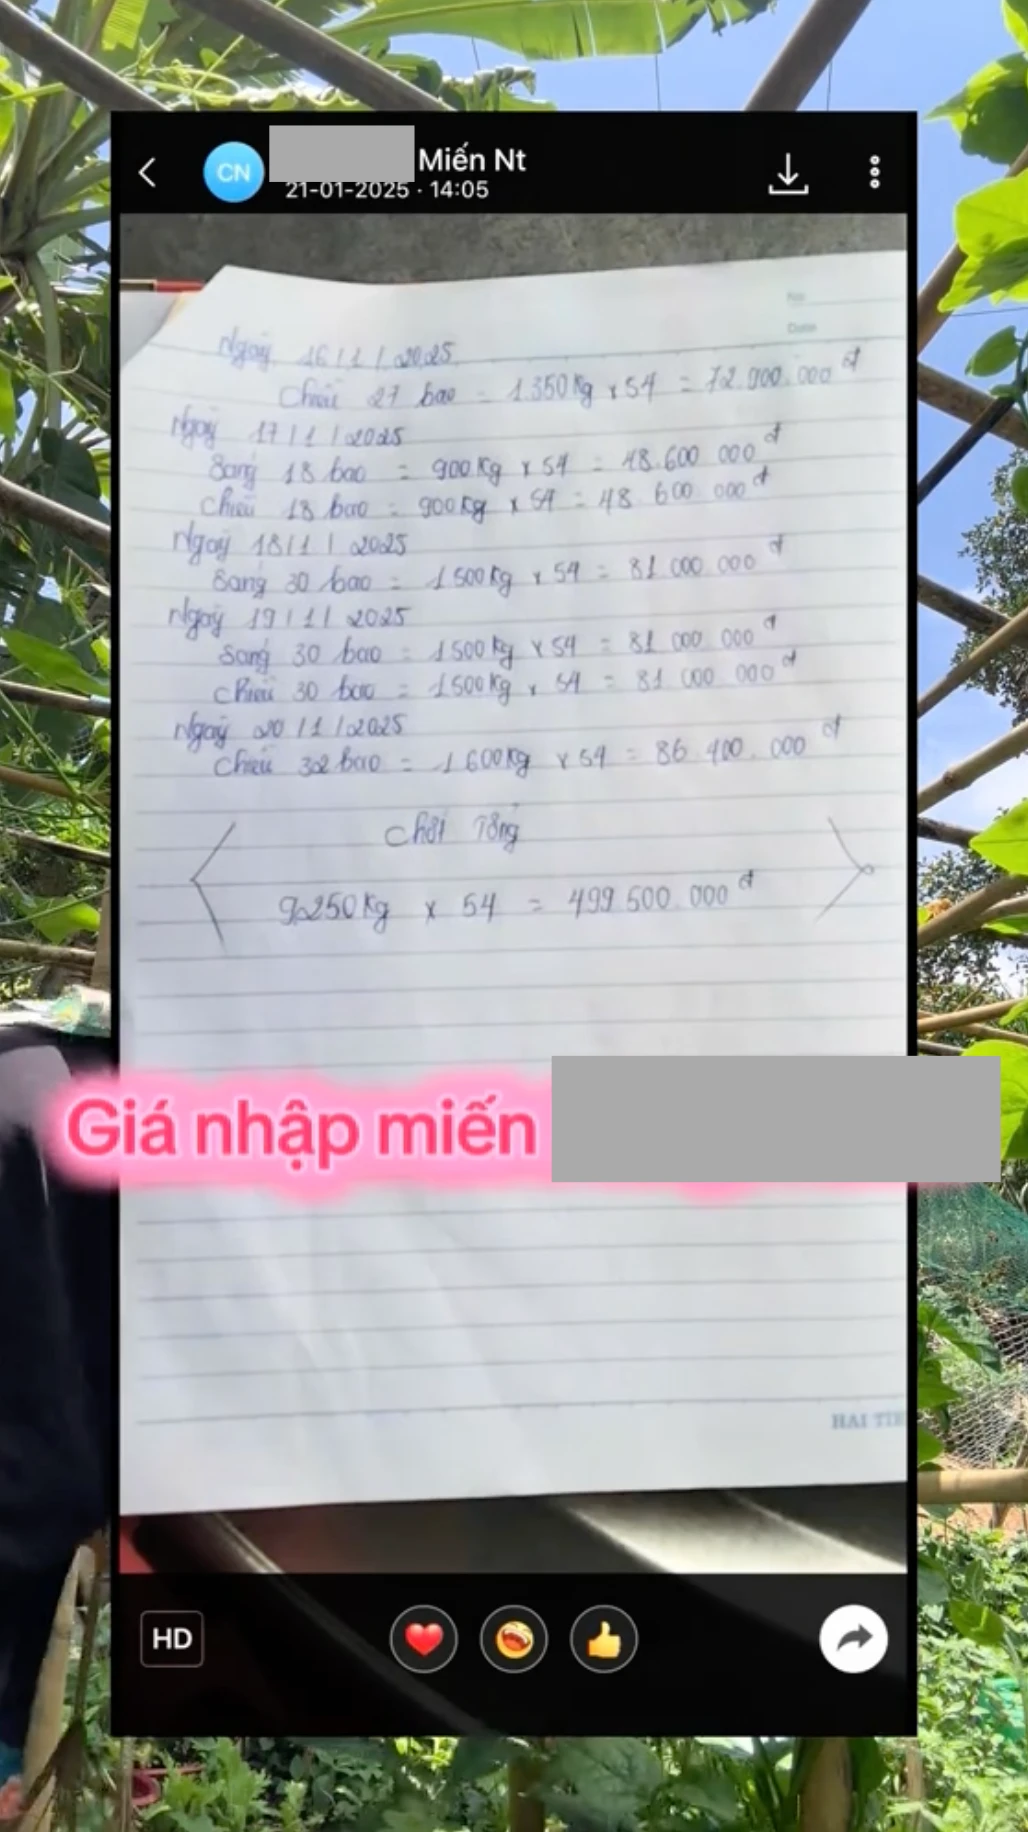 CN
Miến Nt
21-01-2025 · 14:05
No
Date
Ngày 16/1/2025
Chiều 27 bao = 1.350kg x 54 = 72.900.000đ
Ngày 17/1/2025
Sáng 18 bao = 900kg x 54 = 48.600 000đ
Chiều 18 bao = 900kg x 54 = 48.600 000đ
Ngày 18/1/2025
Sáng 30 bao = 1 500kg x 54 = 81 000 000đ
Ngày 19/1/2025
Sáng 30 bao = 1500kg x 54 = 81 000 000đ
Chiều 30 bao = 1500kg x 54 = 81 000 000đ
Ngày 20/1/2025
Chiều 32 bao = 1 600kg x 54 = 86 400.000đ
Chốt Tổng
9.250kg x 54 = 499 500.000đ
Giá nhập miến
HAI TIẾ
HD